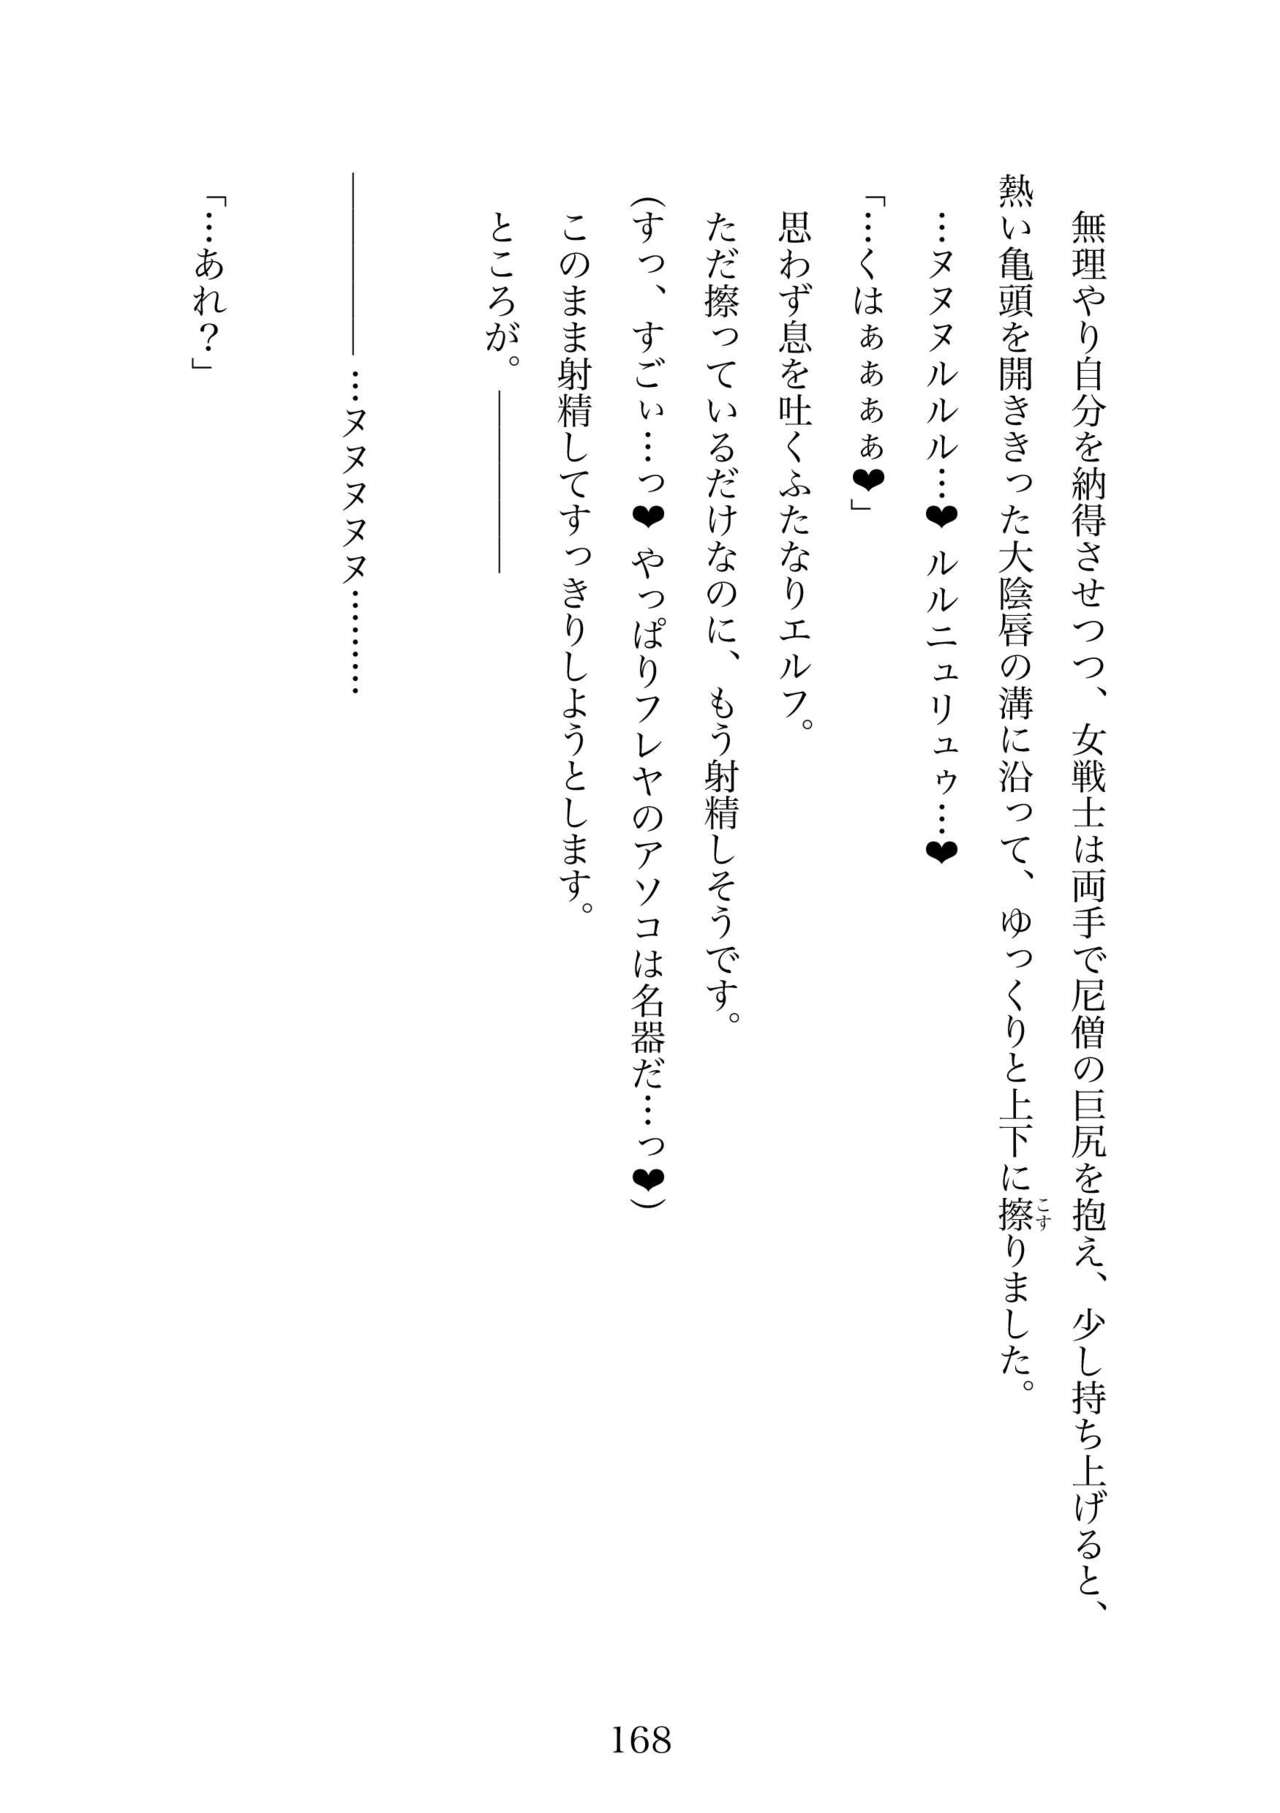 無理やり自分を納得させつつ、女戦士は両手で尼僧の巨尻を抱え、少し持ち上げると、
熱い亀頭を開ききった大陰唇の溝に沿って、ゆっくりと上下に擦りました。
こす
…ヌヌヌルルル…❤ルルニュリュゥ…❤
「…くはぁぁぁぁ❤」
思わず息を吐くふたなりエルフ。
ただ擦っているだけなのに、もう射精しそうです。
(すっ、すごぃ…っ❤やっぱりフレヤのアソコは名器だ…っ❤)
このまま射精してすっきりしようとします。
ところが。―――――
―――――…ヌヌヌヌヌ………
「…あれ？」
168